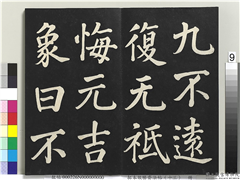 九不遠
復无祗
悔元吉
象曰不
9